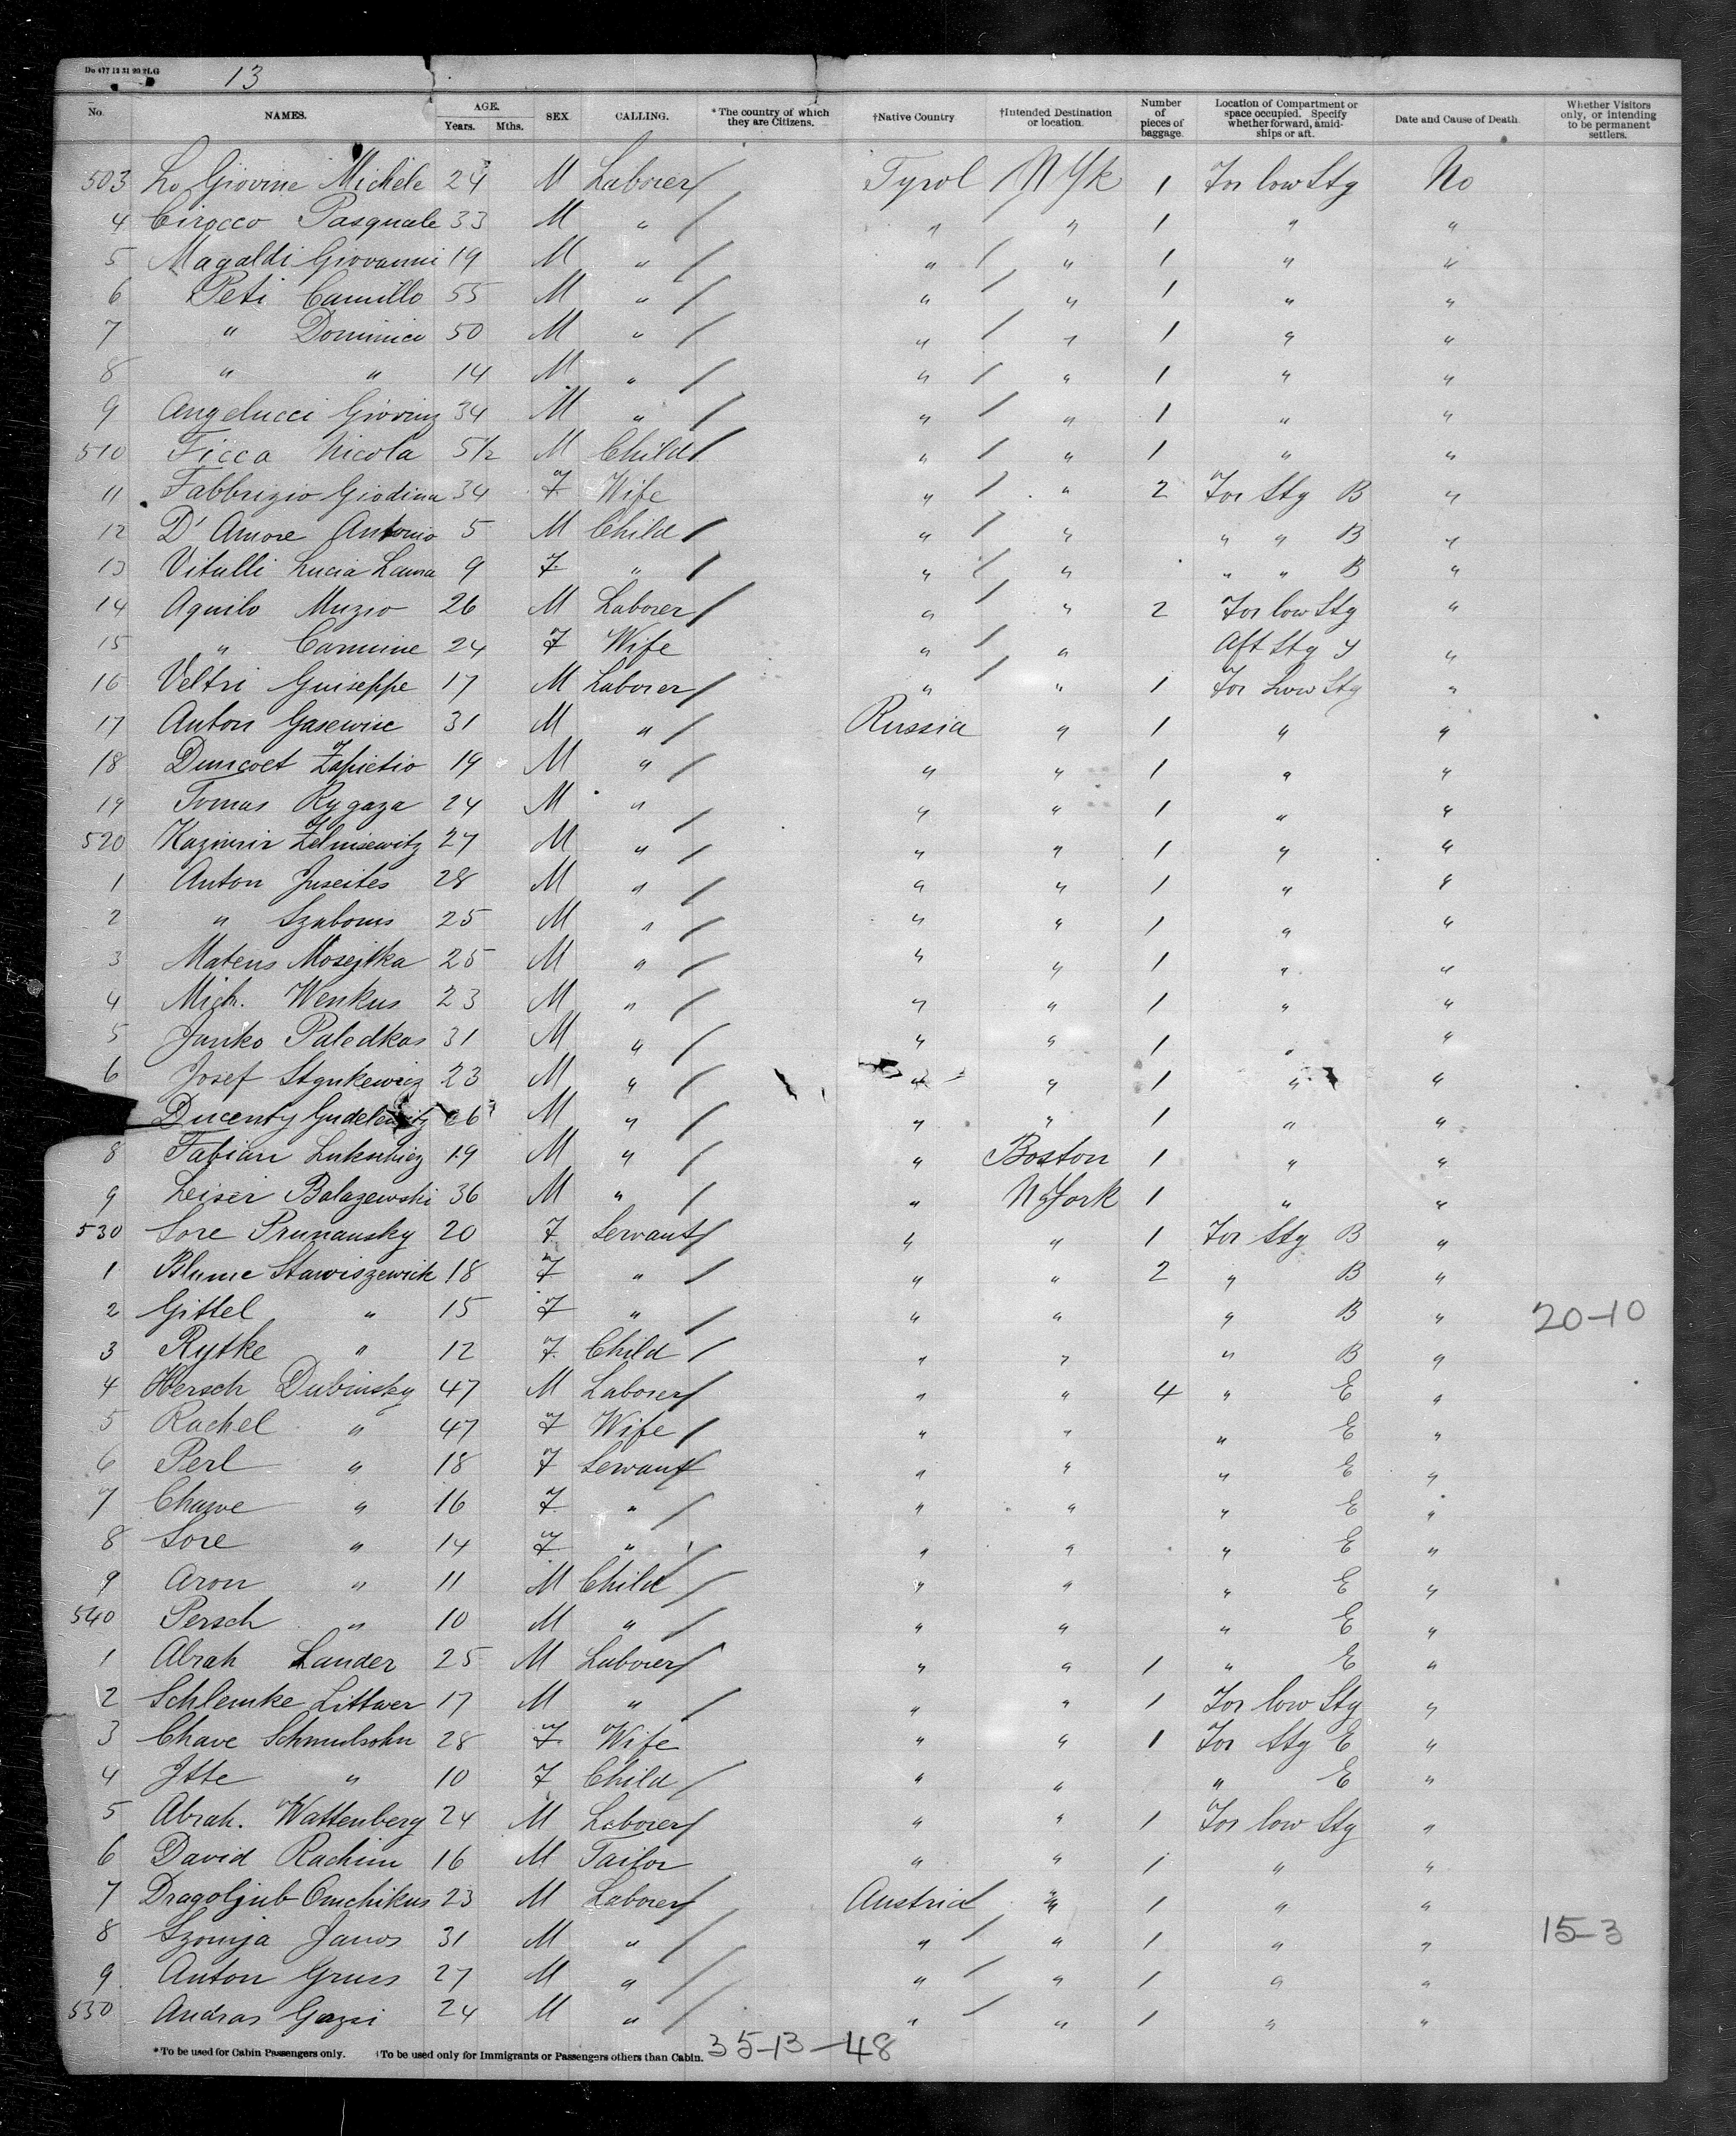 Do 477 13 31 20 2LG
13
No. NAMES. AGE. Years. Mths. SEX CALLING. *The country of which they are Citizens. †Native Country †Intended Destination or location. Number of pieces of baggage. Location of Compartment or space occupied. Specify whether forward, amidships or aft. Date and Cause of Death. Whether Visitors only, or intending to be permanent settlers.
503 Lo Giovine Michele 24 M Laborer / Tyrol / N Yk 1 For low Stg No
4 Cirocco Pasquale 33 M " / " / " 1 " "
5 Magaldi Giovanni 19 M " / " / " 1 " "
6 Peti Camillo 55 M " / " / " 1 " "
7 " Dominico 50 M " / " / " 1 " "
8 " " 14 M " / " / " 1 " "
9 Angelucci 34 M " / " / " 1 " "
510 Ficca Nicola 5 1/2 M Child / " / " 1 " "
11 Fabbrizio 34 F Wife " / " 2 For Stg B "
12 D'Amore Antonio 5 M Child / " / " " " B "
13 Vitulli Lucia Laura 9 F " / " / " " " B "
14 Aquilo Muzio 26 M Laborer / " / " 2 For low Stg "
15 " Carmine 24 F Wife " / " Aft Stg "
16 Veltri Guiseppe 17 M Laborer / " / " 1 For Low Stg "
17 Anton 31 M " / Russia " 1 " "
18 19 M " / " " 1 " "
19 Tomas Rygaza 24 M " / " " 1 " "
520 Kazimir 27 M " / " " 1 " "
1 Anton Juseites 28 M " / " " 1 " "
2 " Szabonis 25 M " / " " 1 " "
3 Mateus 25 M " / " " 1 " "
4 Mich. Wenkus 23 M " / " " 1 " "
5 Janko Paledkas 31 M " / " " 1 " "
6 Josef 23 M " / " " 1 " "
M " / " " 1 " "
8 Fabian 19 M " / " Boston 1 " "
9 Leiser Balazewski 36 M " / " N York 1 " "
530 Sore Prunansky 20 F Servant / " " 1 For Stg B "
1 Blume Stawiszewich 18 F " / " " 2 " B "
2 Gittel " 15 F " / " " " B " 20-10
3 Rytke " 12 F Child / " " " B "
4 Hersch Dubinsky 47 M Laborer / " " 4 " E "
5 Rachel " 47 F Wife / " " " E "
6 Perl " 18 F Servant / " " " E "
7 Chawe " 16 F " / " " " E "
8 Sore " 14 F " / " " " E "
9 Aron " 11 M Child / " " " E "
540 Persch " 10 M " / " " " E "
1 Abrah Lander 25 M Laborer / " " 1 " E "
2 Schlemke Littwer 17 M " / " " 1 For low Stg "
3 Chave Schmulsohn 28 F Wife " " 1 For Stg E "
4 Itte " 10 F Child / " " " E "
5 Abrah. Wattenberg 24 M Laborer / " " 1 For low Stg "
6 David Rachim 16 M Tailor " " 1 " "
7 Dragoljub Omchikus 23 M Laborer / Austria / " 1 " "
8 Janos 31 M " / " / " 1 " " 15-3
9 Anton Gruss 27 M " / " / " 1 " "
550 Andras 24 M " / " / " 1 " "
*To be used for Cabin Passengers only. †To be used only for Immigrants or Passengers others than Cabin. 35-13-48